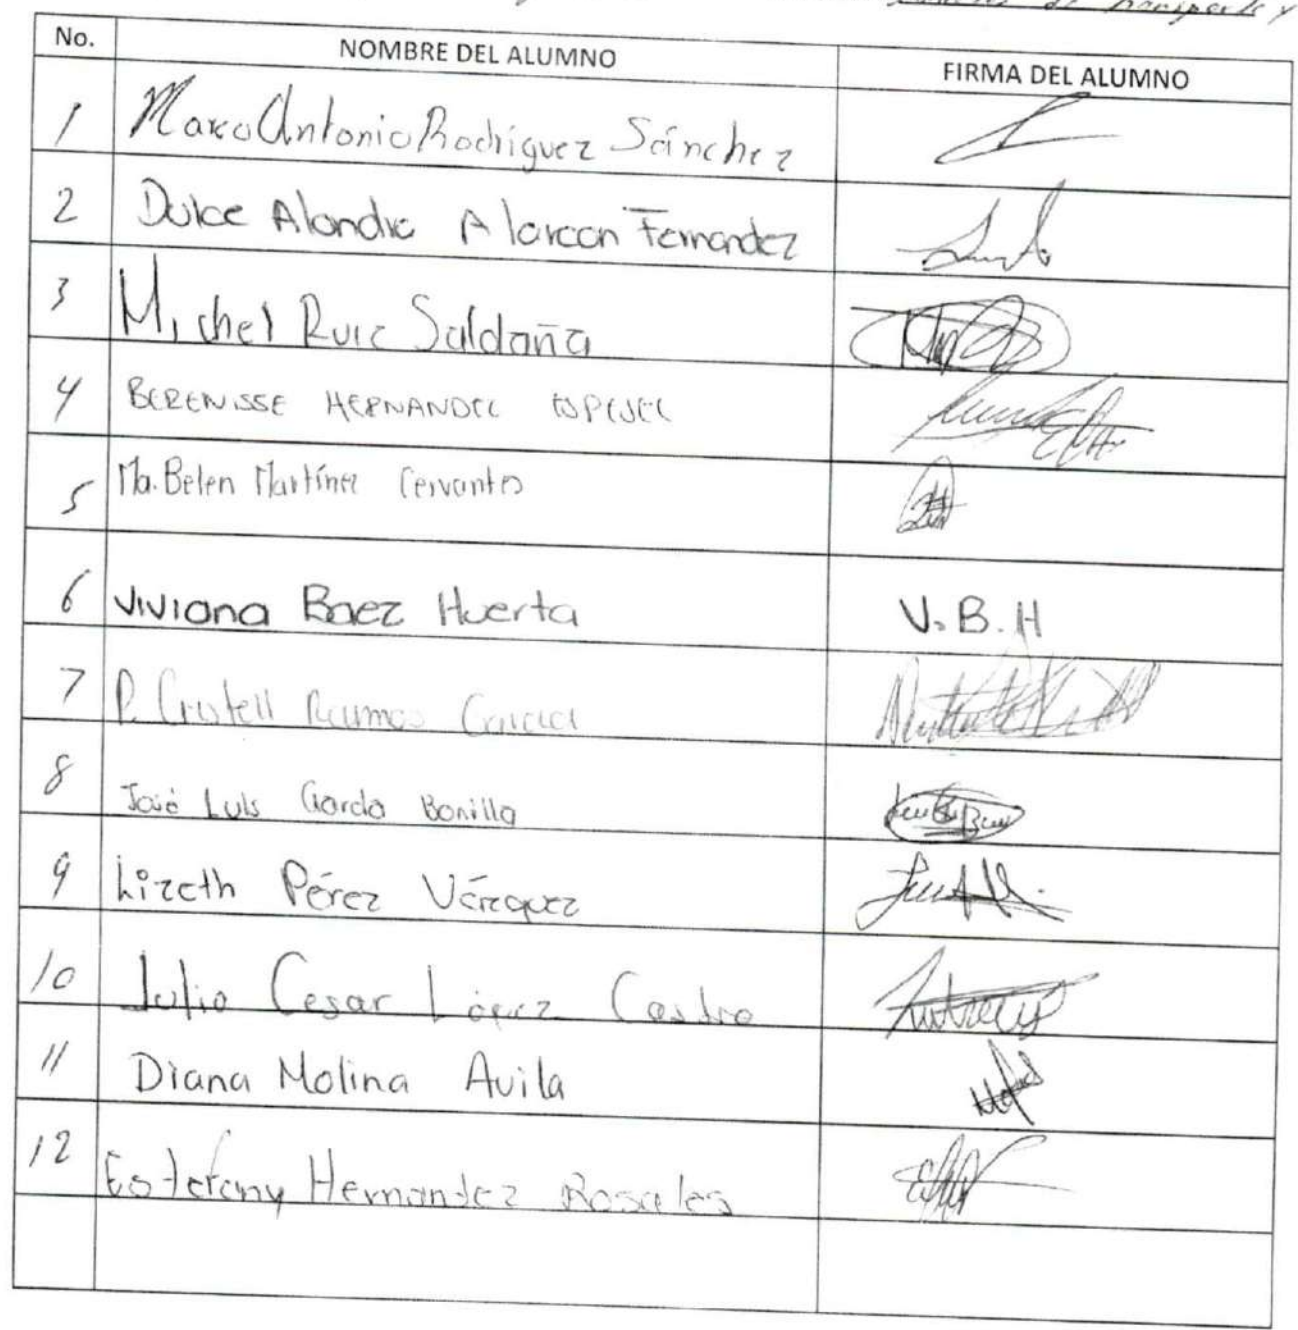 de Transporte y
No. NOMBRE DEL ALUMNO FIRMA DEL ALUMNO
1 Marco Antonio Rodríguez Sánchez
2 Dulce Alondra Alarcon Fernandez
3 Michel Ruiz Saldaña
4 BERENISSE HERNANDEZ ESPEJEL
5 Ma. Belen Martínez Cervantes
6 Viviana Baez Huerta V. B. H
7 P. Cristell Ramos Garcia
8 José Luis García Bonilla
9 Lizeth Pérez Vázquez
10 Julio Cesar López Castro
11 Diana Molina Avila
12 Estefany Hernandez Rosales